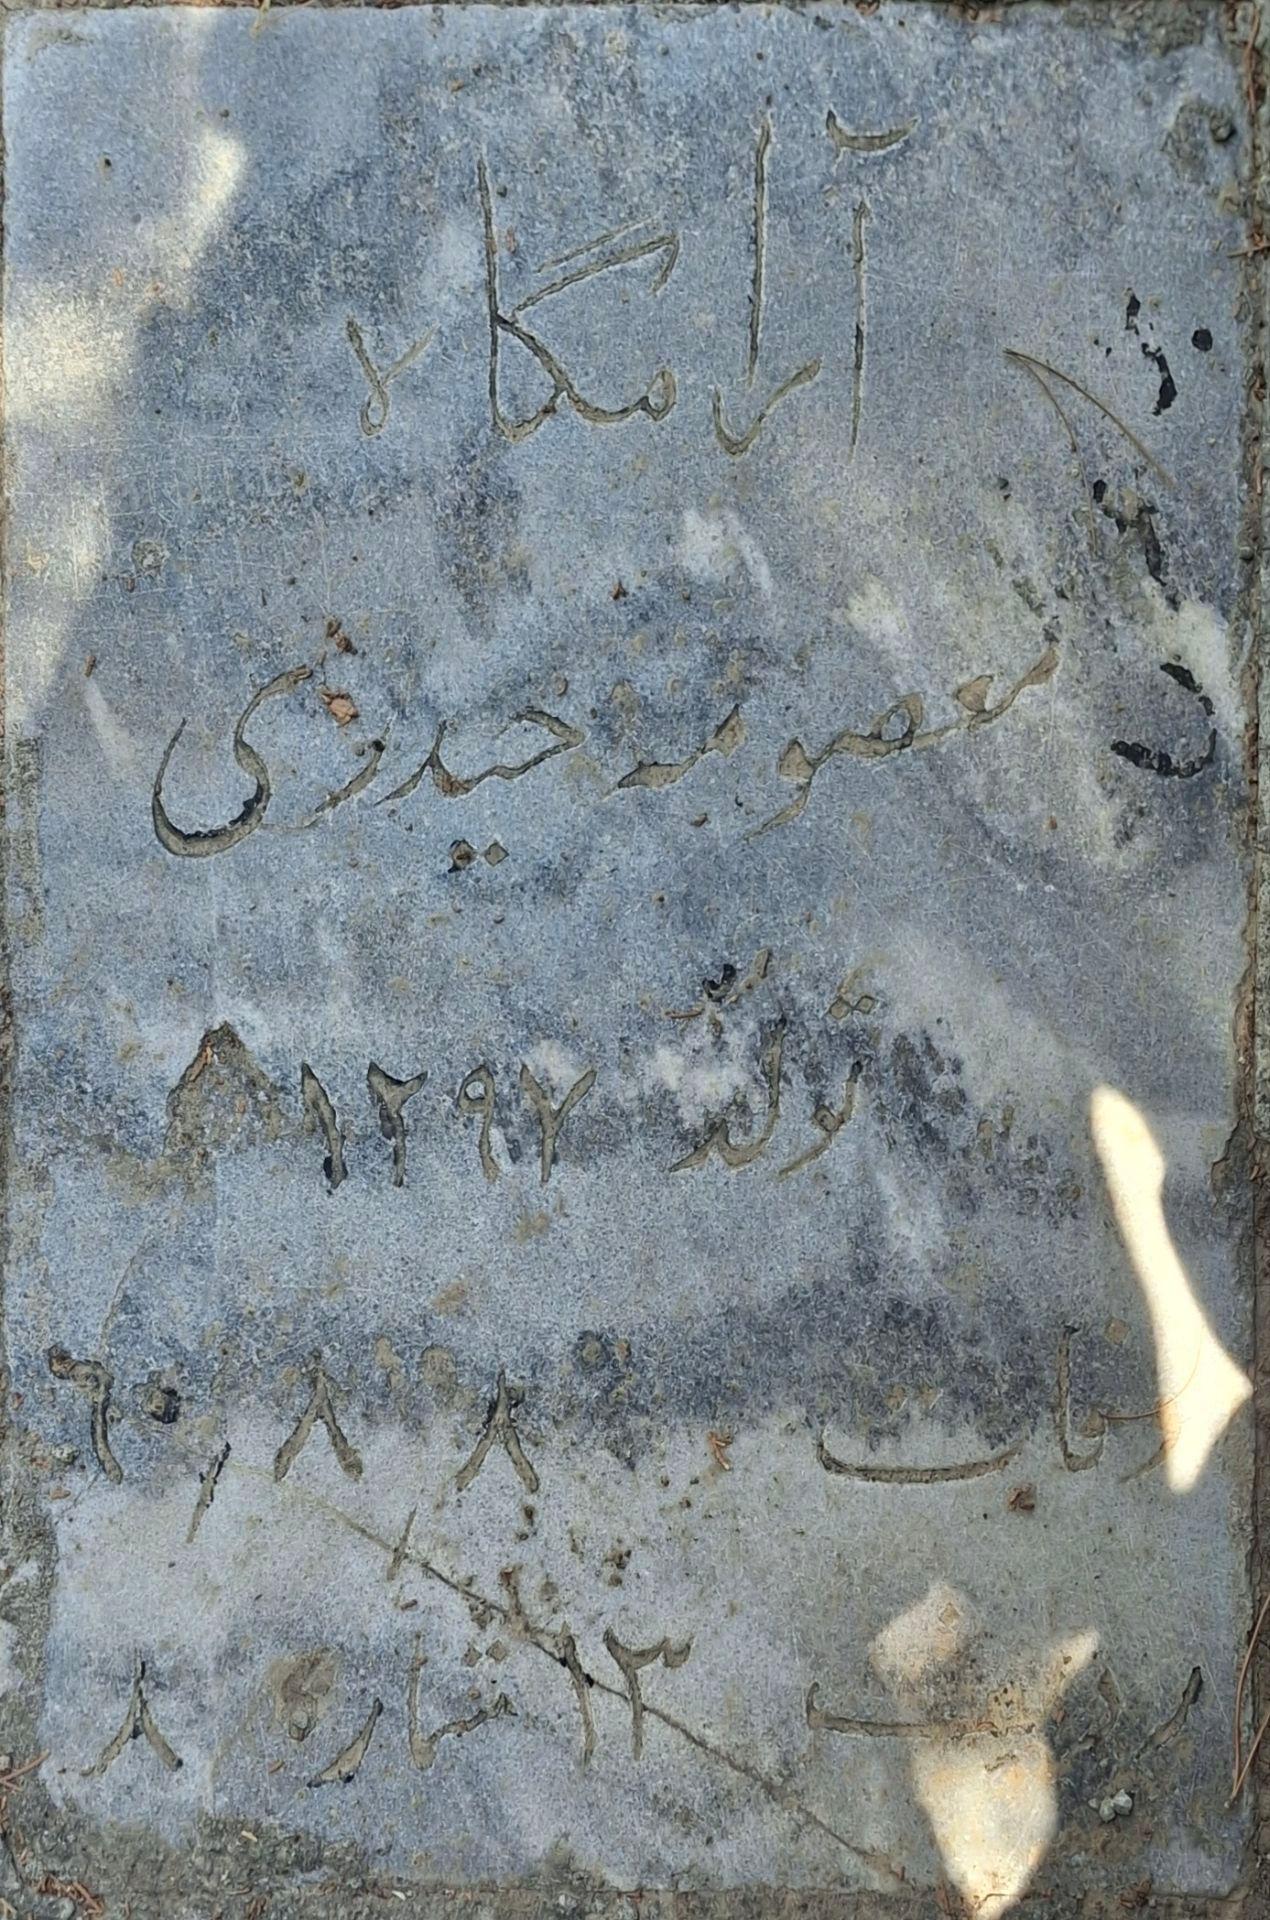 آرامگاه
معصومه حیدری
تولد ۱۲۹۷
وفات ۸ر۸ر۶۰
ردیف ۱۳ شماره ۸